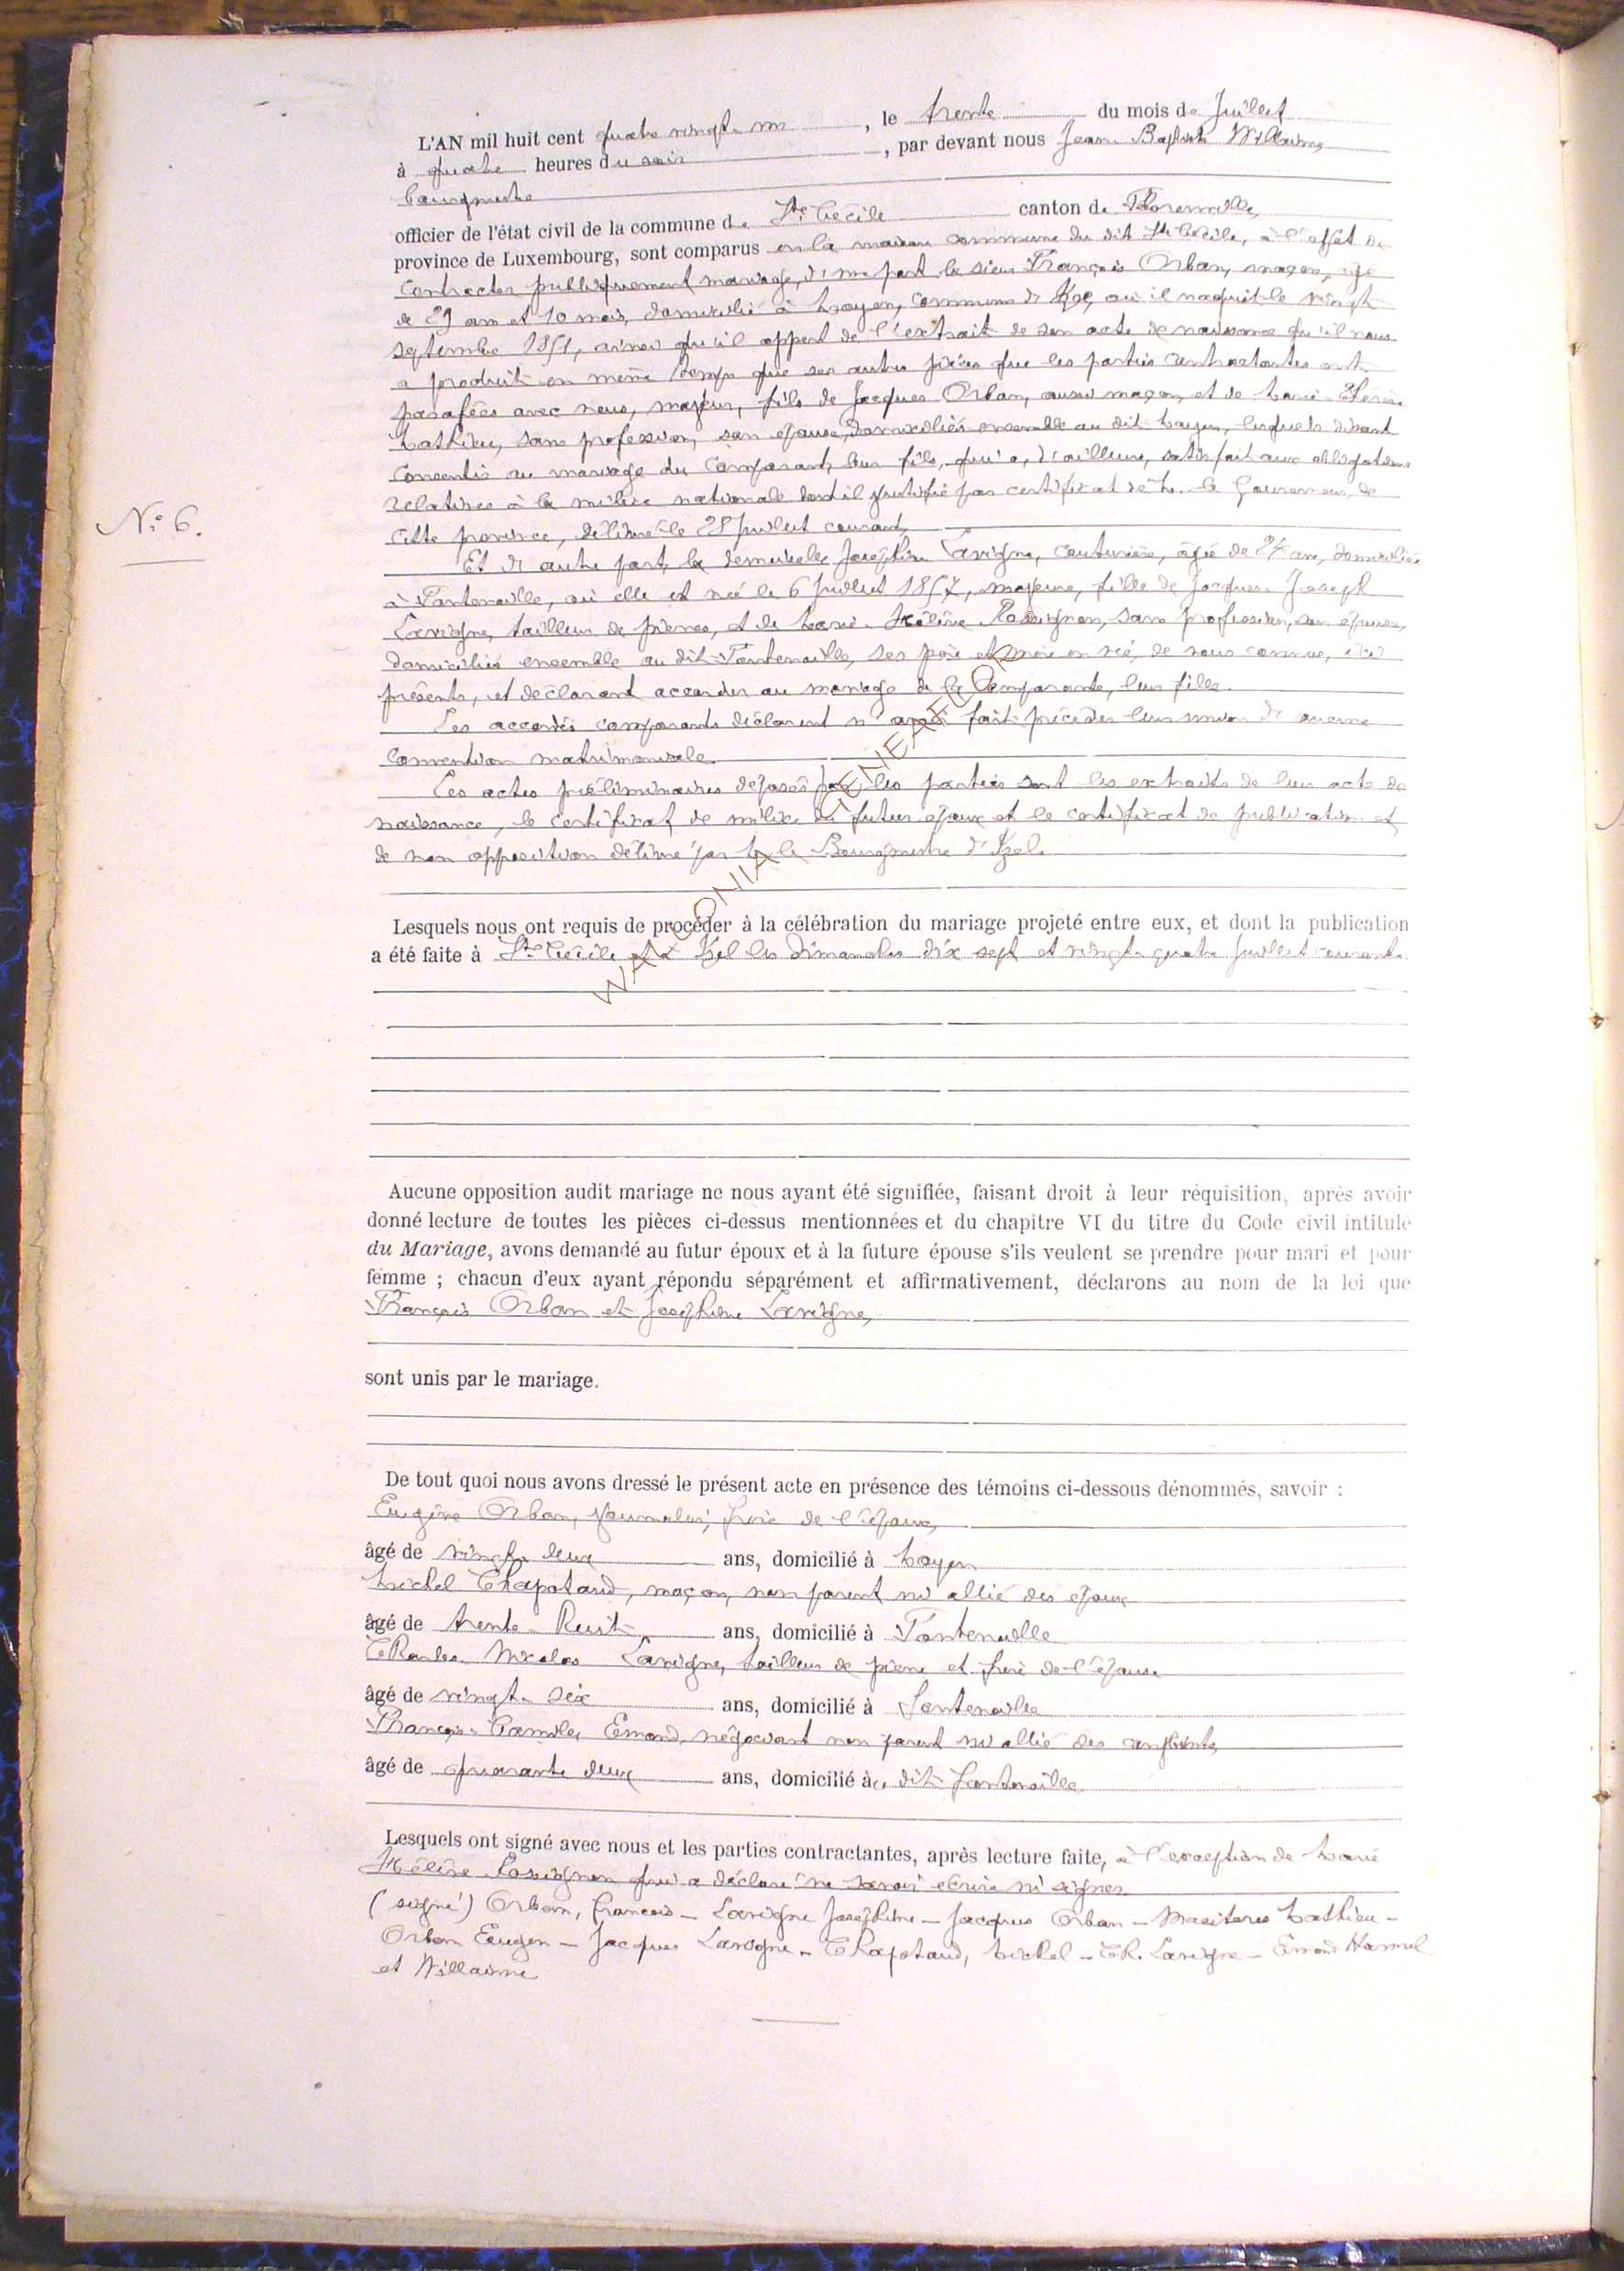 L'AN mil huit cent quatre vingt-un, le trente du mois de Juillet
à quatre heures du soir, par devant nous Jean-Baptiste Willaime
bourgmestre
officier de l'état civil de la commune de Ste Cécile canton de Florenville,
province de Luxembourg, sont comparus en la maison commune du dit Ste Cécile, à l'effet de
contracter publiquement mariage, d'une part le sieur François Orban, maçon, âgé
de 29 ans et 10 mois, domicilié à Moyen, commune d'Izel, où il naquit le vingt
septembre 1851, ainsi qu'il appert de l'extrait de son acte de naissance qu'il nous
a produit en même temps que ses autres pièces que les parties contractantes ont
parafées avec nous, majeur, fils de Jacques Orban, aussi maçon, et de Marie-Thérèse
Mathieu, sans profession, son épouse, domiciliés ensemble au dit Moyen, lesquels disant
consentir au mariage du Comparant, leur fils, qui a, d'ailleurs, satisfait aux obligations
relatives à la milice nationale dont il justifie par certificat de M. le Gouverneur de
cette province, délivré le 28 juillet courant,
N° 6.
Et d'autre part, la demoiselle Joséphine Lavigne, couturière, âgée de 24 ans, domiciliée
à Fontenoille, où elle est née le 6 Juillet 1857, majeure, fille de Jacques-Joseph
Lavigne, tailleur de pierres, et de Marie-Hélène Rossignon, sans profession, son épouse,
domiciliés ensemble au dit Fontenoille, ses père et mère, de nous connus, ici
présents, et déclarant accorder au mariage de la Comparante, leur fille.
Les accordés comparants déclarent n'avoir fait précéder leur union d'aucune
convention matrimoniale.
Les actes préliminaires déposés par les parties sont les extraits de leur acte de
naissance, le certificat de milice du futur époux et le certificat de publication et
de non opposition délivré par M. le Bourgmestre d'Izel.
WALLONIA GENEAFLOR
Lesquels nous ont requis de procéder à la célébration du mariage projeté entre eux, et dont la publication
a été faite à Ste Cécile et à Izel les dimanches dix sept et vingt-quatre juillet courant.
Aucune opposition audit mariage ne nous ayant été signifiée, faisant droit à leur réquisition, après avoir
donné lecture de toutes les pièces ci-dessus mentionnées et du chapitre VI du titre du Code civil intitulé
du Mariage, avons demandé au futur époux et à la future épouse s'ils veulent se prendre pour mari et pour
femme ; chacun d'eux ayant répondu séparément et affirmativement, déclarons au nom de la loi que
François Orban et Joséphine Lavigne,
sont unis par le mariage.
De tout quoi nous avons dressé le présent acte en présence des témoins ci-dessous dénommés, savoir :
Eugène Orban, journalier, frère de l'époux,
âgé de vingt-deux ans, domicilié à Moyen
Michel Chapotaud, maçon, non parent ni allié des époux
âgé de trente-huit ans, domicilié à Fontenoille
Charles-Nicolas Lavigne, tailleur de pierre et frère de l'épouse
âgé de vingt-six ans, domicilié à Fontenoille
François-Camille Emond, négociant non parent ni allié des conjoints,
âgé de quarante deux ans, domicilié au dit Fontenoille.
Lesquels ont signé avec nous et les parties contractantes, après lecture faite, à l'exception de Marie
Hélène Rossignon qui a déclaré ne savoir écrire ni signer.
(signé) Orban, François - Lavigne Joséphine - Jacques Orban - Mathieu -
Orban Eugen - Jacques Lavigne - Chapotaud, Michel - Ch. Lavigne - Emond
et Willaime